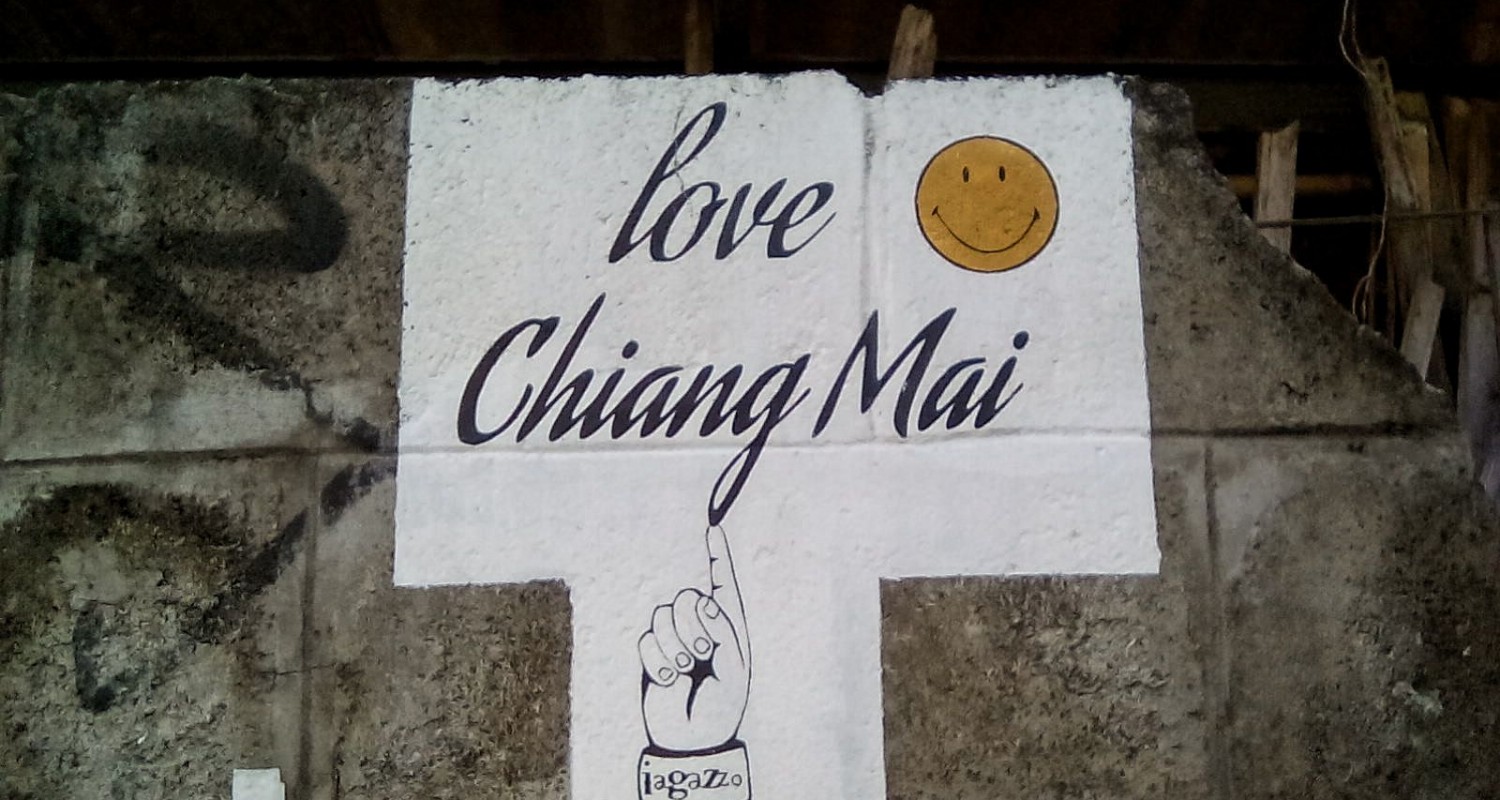 love
Chiang Mai
iagazzo